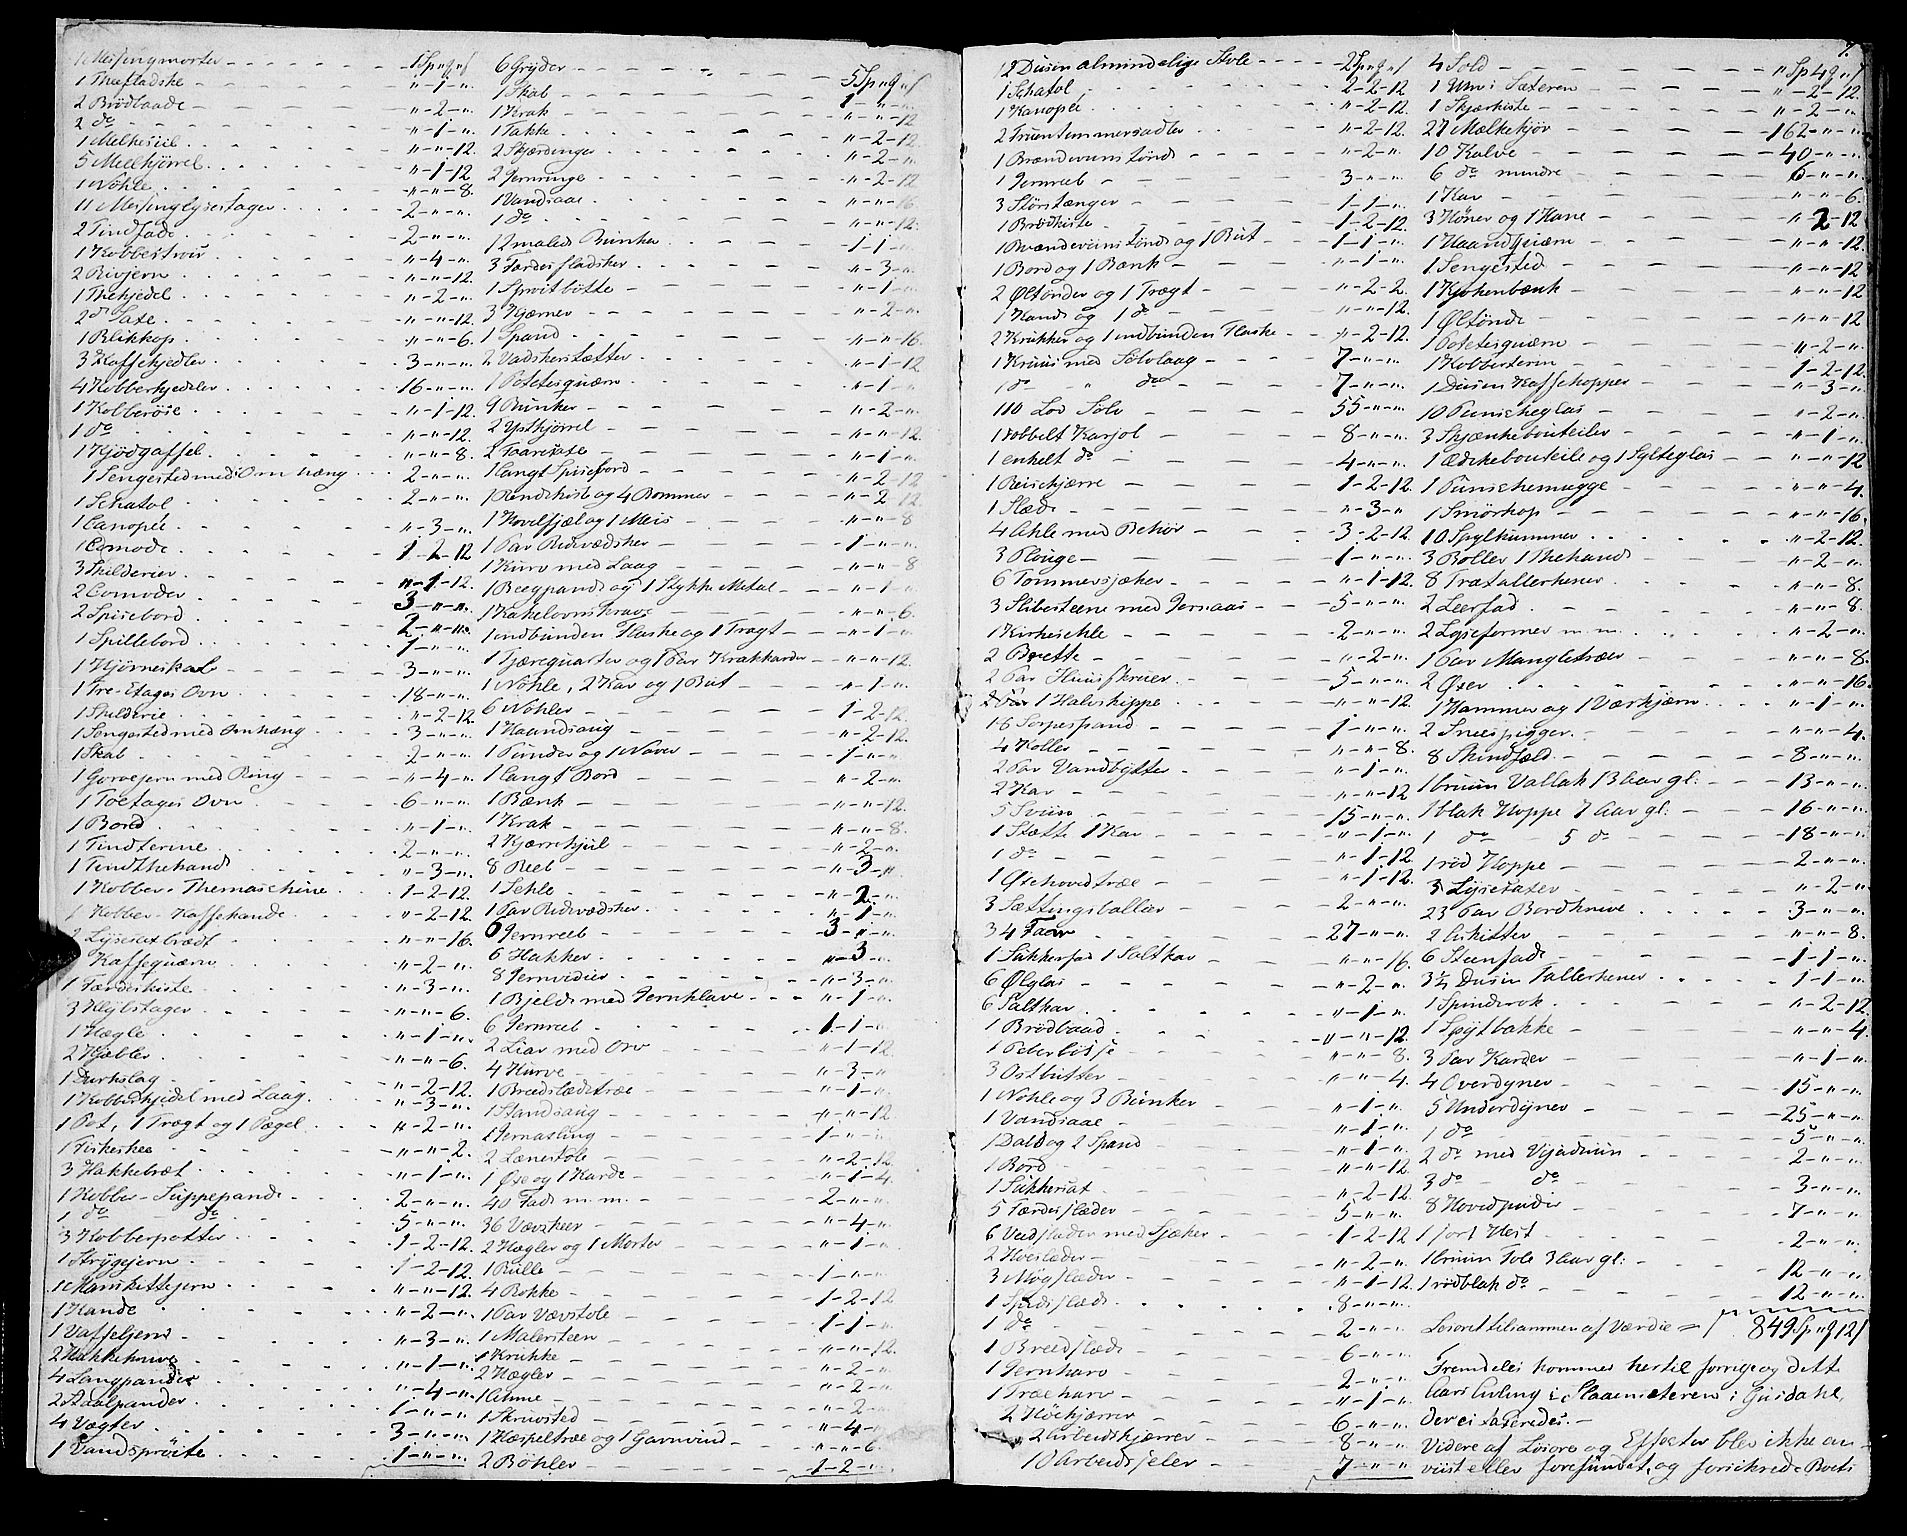 1 Messingmorter - - - 1 Sp " q " s
1 Theefladske - - - " - 1 - "
2 Brødlaade - - - " - 2 - "
2 do - - - " - 1 - "
1 Melkesiil - - - " - " - 12
5 Melkjørrel - - - " - 1 - 12
1 Nohle - - - " - " - 8
11 Messinglysestager - - - 2 - " - "
2 Tindfade - - - 2 - " - "
2 Rivjern - - - " - " - 12
1 Thekjedel - - - " - 2 - "
2 do Saxe - - - " - " - 12
1 Blikkop - - - " - " - 6
3 Kaffekjedler - - - 3 - " - "
4 Kobberkjedeler - - - 16 - " - "
1 Kobberøse - - - " - 1 - 12
1 do - - - " - " - 12
1 Kjødgaffel - - - " - " - 8
1 Sengested med Omhæng - - - 2 - " - "
1 Schatol - - - 2 - " - "
1 Canopée - - - " - 3 - "
1 Comode - - - 1 - 2 - 12
3 Skilderier - - - " - 1 - 12
2 Comoder - - - 3 - " - "
2 Spisebord - - - 2 - " - "
1 Spillebord - - - 1 - " - "
1 Hjørneskab - - - 3 - " - "
1 Tre-Etages Ovn - - - 18 - " - "
1 Skilderie - - - " - 2 - 12
1 Sengested med Omhæng - - - 3 - " - "
1 Skab - - - 2 - " - "
1 Gorosjern med Ring - - - " - 4 - "
1 Toetages Ovn - - - 6 - " - "
1 Bord - - - " - 1 - "
1 Tindterine - - - 2 - " - "
1 Tindthekande - - - " - 3 - "
1 Kobber-Themaschine - - - 1 - 2 - 12
1 Kobber-Kaffekande - - - " - 2 - 12
2 Lysesaxbrædt - - - " - " - 16
1 Kaffeqværn - - - " - 2 - "
1 Færdeskiste - - - " - 3 - "
1 Hægle - - - " - 1 - "
1 Durkslag - - - " - 2 - 12
1 Kobberkjedel med Laag - - - " - 3 - "
1 Pot, 1 Tragt og 1 Pægel - - - " - 2 - "
1 Fiskeskee - - - " - " - 2
3 Hakkebræt - - - " - 1 - "
1 Kobber-Suppepande - - - 2 - " - "
1 do do - - - 5 - " - "
3 Kobberpotter - - - 1 - 2 - 12
1 Strygejern - - - 1 - 2 - 12
1 Kande - - - " - 2 - "
1 Vaffeljern - - - " - 3 - "
2 Hakkeknive - - - " - 1 - "
4 Langpander - - - " - 4 - "
4 Vægter - - - 3 - " - "
1 Vandsprøite - - - 1 - " - "
6 Gryder - - - 5 Sp " q " s
1 Skab - - - 1 - " - "
1 Krak - - - " - " - 12
1 Takke - - - " - 2 - 12
2 Skjærdinger - - - " - 2 - "
2 Jernringe - - - " - 2 - 12
1 Vandsaae - - - " - " - 16
1 do - - - " - " - 12
12 malede Bunker - - - 1 - 1 - "
3 Færdesfladsker - - - " - 3 - "
1 Sprøitbøtte - - - " - 1 - "
3 Kjærner - - - " - 2 - "
1 Spand - - - " - " - 16
2 Vadskerstøtter - - - " - 1 - 12
1 Potetesquærn - - - " - 1 - "
9 Bunker - - - " - 2 - "
2 Ystkjørrel - - - " - " - 12
2 Faaresaxe - - - " - 1 - "
1 langt Spisebord - - - " - 2 - 12
1 Rendskole og 4 Bommer - - - " - 2 - 12
1 Kovelfjæl og 1 Meis - - - " - " - 8
1 Par Ridevædsker - - - 1 - " - "
1 Kurv med Laag - - - " - " - 8
1 Beegpande og 1 Stykke Metal - - - " - 1 - "
1 Kakelovnskrave - - - " - " - 6
1 indbunden Flaske og 1 Tragt - - - " - 1 - "
1 Tjærequarter og 1 Par Krakkarder - - - " - " - 12
1 Nohle, 2 Kar og 1 But - - - " - 1 - "
6 Nohler - - - 1 - 2 - 12
1 Haandsaug - - - " - 2 - 12
1 Tønder og 1 Naver - - - 1 - " - "
1 langt Bord - - - " - 2 - "
1 Bænk - - - " - " - 12
1 Krak - - - " - " - 8
2 Kjærrehjul - - - " - 2 - "
8 Reeb - - - " - 3 - "
1 Sehle - - - " - 2 - "
1 Par Ridevædsker - - - " - 1 - "
6 Jernreeb - - - 3 - " - "
6 Hakker - - - " - 3 - "
8 Jernvidier - - - " - 3 - "
1 Bjelde med Jernklave - - - " - 1 - "
6 Jernreeb - - - 1 - 1 - "
2 Liar med Orv - - - " - 1 - 12
4 Kurve - - - " - 3 - "
1 Bredslædetræe - - - " - 1 - "
1 Standsaug - - - " - " - 12
1 Jernastling - - - 1 - " - "
2 Lænestole - - - " - 2 - 12
1 Øxe og 1 Karde - - - " - 1 - 4
40 Fade m.m. - - - 2 - " - "
36 Vævskeer - - - " - 4 - "
2 Hægler og 1 Morter - - - " - 1 - "
1 Rulle - - - 1 - " - "
4 Rokke - - - 1 - 2 - 12
1 Par Vævstole - - - 1 - 1 - "
1 Malersteen - - - " - " - 12
1 Krukke - - - " - 2 - "
2 Hægler - - - " - 2 - "
1 Amme - - - " - 2 - "
1 Skruested - - - " - 4 - "
1 Hæspeltræe og 1 Garnvind - - - " - " - 6
2 Bøhler - - - 1 - 2 - "
1 2 Dusin almindelige Stole - - - 2 Sp " q " s
1 Schatol - - - 2 - 2 - 12
1 Kanopée - - - " - 2 - 12
2 Fruentimmersadler - - - " - 2 - 12
1 Brændeviinstønde - - - " - 2 - "
1 Jernreeb - - - 3 - " - "
3 Størstænger - - - 1 - 1 - "
1 Brødkiste - - - 1 - 2 - 12
1 Brændeviinstønde og 1 But - - - 1 - 1 - "
1 Bord og 1 Bænk - - - " - 1 - "
2 Øltønder og 1 Tragt - - - " - 2 - 2
1 Kande og 1 do - - - " - " - 12
2 Krukker og 1 indbunden Flaske - - - " - 2 - 12
1 Kruus med Sølvlaag - - - 7 - " - "
1 do " do - - - 7 - " - "
110 Lod Sølv - - - 55 - " - "
1 dobbelt Karjol - - - 8 - " - "
1 enkelt do - - - 4 - " - "
1 Reisekjærre - - - 1 - 2 - 12
1 Slæde - - - " - 3 - "
4 Ahle med Behør - - - 3 - 2 - 12
3 Plouge - - - 1 - " - "
6 Tømmersjæker - - - " - 1 - 12
3 Slibesteene med Jernaas - - - 5 - " - "
1 Kirkesehle - - - 2 - " - "
2 Børette - - - " - 2 - "
2 Par Huusskruer - - - 5 - " - "
1 Halvskippe - - - " - " - 12
16 Sørpespand - - - 1 - " - "
4 Koller - - - " - " - 8
2 Par Vandbytter - - - " - 1 - "
2 Kar - - - " - " - 12
5 Sviin - - - 15 - " - "
1 Støtte 1 Kar - - - " - 1 - "
1 do - - - " - 1 - 12
1 Øxehovedtræe - - - " - 1 - 12
3 Sættingsballier - - - 2 - " - "
34 Faar - - - 27 - " - "
1 Sukkerfad 1 Saltkar - - - " - " - 16
6 Ølglas - - - " - 2 - "
6 Saltkar - - - " - 1 - "
1 Brødbaad - - - " - " - 12
1 Peberbøsse - - - " - " - 8
3 Ostbutter - - - " - " - 4
1 Nohle og 3 Bunker - - - " - 1 - "
1 Vandsaae - - - " - 1 - "
1 Dald og 2 Spand - - - " - 1 - "
1 Bord - - - " - " - 12
1 Sukkersax - - - " - 2 - 12
5 Færdesslæder - - - 5 - " - "
6 Vedslæder med Sjæker - - - 1 - 2 - 12
2 Høeslæder - - - " - 2 - "
3 Møgslæder - - - " - 1 - 12
1 Spidsslæde - - - 8 - " - "
1 do - - - 2 - " - "
1 Breedslæde - - - 6 - " - "
1 Jernharv - - - 2 - " - "
1 Træeharv - - - " - 1 - "
2 Høekjærrer - - - 6 - " - "
2 Arbeidskjærrer - - - 8 - " - "
10 Arbeidsseler - - - 7 - " - "
7.
4 Sold - - - " Sp 4 q " s
1 Uhr i Sæteren - - - " - 2 - 12
1 Skjærkiste - - - " - 2 - "
27 Melkekjør - - - 162 - " - "
10 Kalve - - - 40 - " - "
6 do mindre - - - 6 - " - "
1 Kar - - - " - " - 6
3 Høner og 1 Hane - - - " - 2 - 12
1 Haandquærn - - - " - " - 12
1 Sengested - - - " - " - 12
1 Kjøkenbænk - - - " - " - 12
1 Øltønde - - - " - " - 12
1 Potetesquærn - - - " - 2 - "
1 Kobberterin - - - 1 - 2 - 12
1 Dusin Kaffekopper - - - " - 3 - "
10 Punscheglas - - - " - 2 - "
3 Skjænkebouteiler - - - " - 1 - "
1 Ædikebouteile og 1 Sylteglas - - - " - " - 12
1 Punschemugge - - - " - " - 4
1 Smørkop - - - " - " - 16
10 Spylkummer - - - " - 2 - 12
3 Boller 1 Thekande - - - " - 2 - "
8 Trætallerkener - - - " - " - 8
2 Leerfad - - - " - " - 8
2 Lyseformer m.m. - - - " - 2 - "
1 Par Mangletræer - - - " - " - 8
2 Øxer - - - " - " - 16
1 Hammer og 1 Værkjærn - - - " - 1 - "
2 Sneespigger - - - " - " - 4
8 Skindfæld - - - 8 - " - "
1 bruun Vallak 13 Aar gl: - - - 13 - " - "
1 blak Hoppe 7 Aar gl: - - - 16 - " - "
1 do 5 do - - - 18 - " - "
1 rød Hoppe - - - 2 - " - "
3 Lysesaxer - - - " - 2 - "
23 Par Bordknive - - - 3 - " - "
2 Askitter - - - " - " - 8
6 Steenfade - - - 1 - 1 - "
3½ Dusin Tallerkener - - - 1 - 1 - "
1 Spinderok - - - " - 2 - 12
1 Spytbakke - - - " - " - 4
3 Par Karder - - - " - 1 - "
4 Overdyner - - - 15 - " - "
5 Underdyner - - - 25 - " - "
1 do - - - 5 - " - "
2 do med Vyjaduun - - - 2 - " - "
3 do do - - - 3 - " - "
8 Hovedpuder - - - 7 - " - "
1 sort Hest - - - 2 - " - "
1 bruun Fole 3 Aar gl: - - - 12 - " - "
1 rødblak do - - - 12 - " - "
Løsøret tilsammen af Værdie = 849 Sp " q 12 s
Fremdeles kommer hertil forrige og dette
Aars Avling i Slaaensæteren i Gusdahl,
der ei taxeredes. -
Videre af Løsøre og Effecter blev ikke an-
viist eller forefundet, og forsikrede Boets